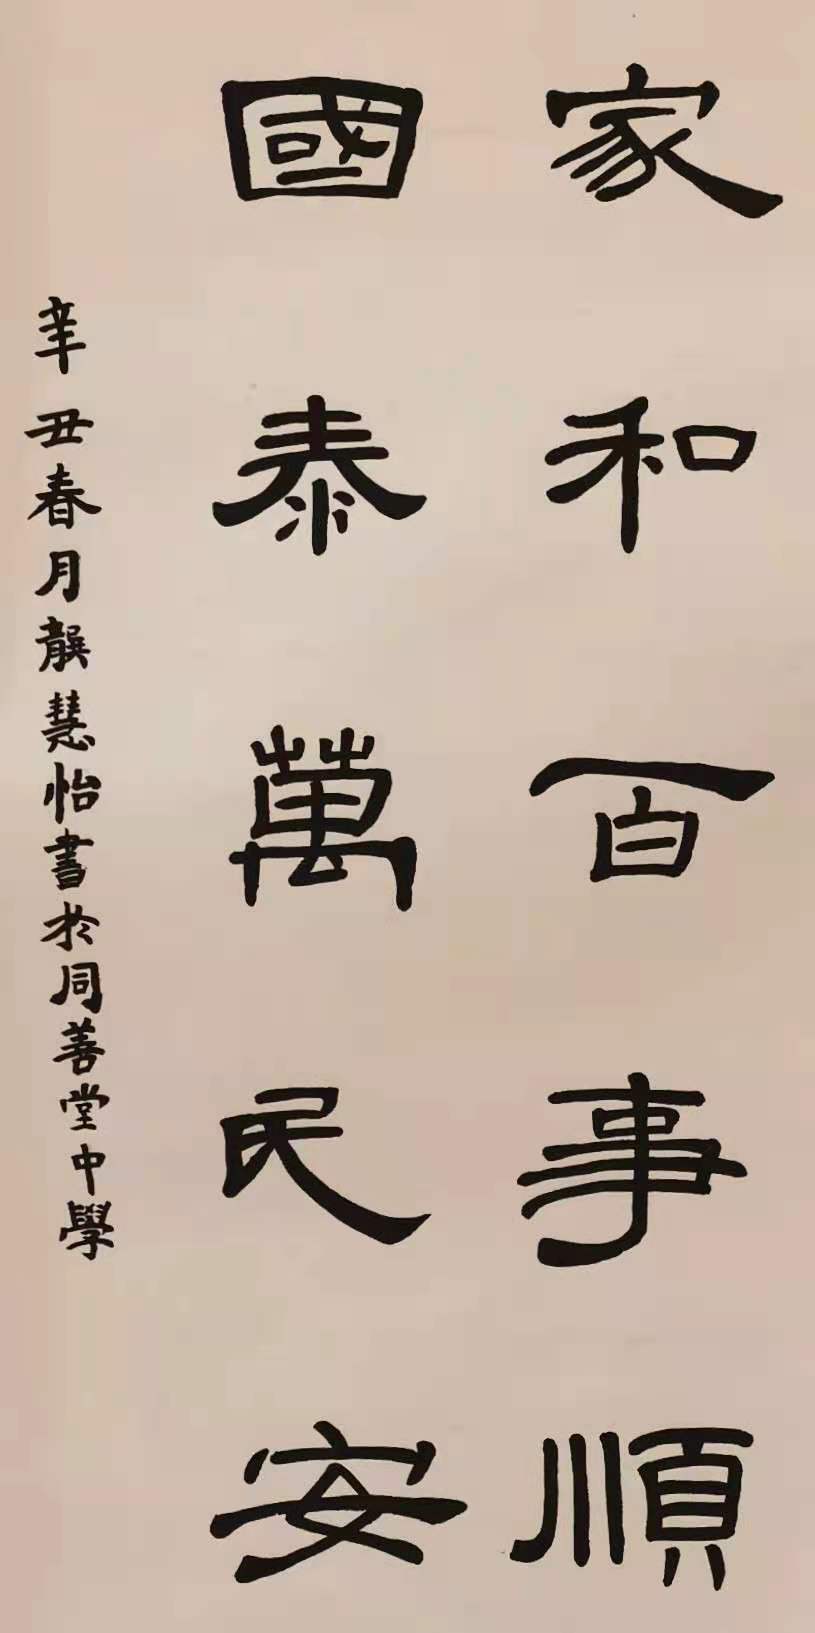 家和百事順
國泰萬民安
辛丑春月龔慧怡書於同善堂中學